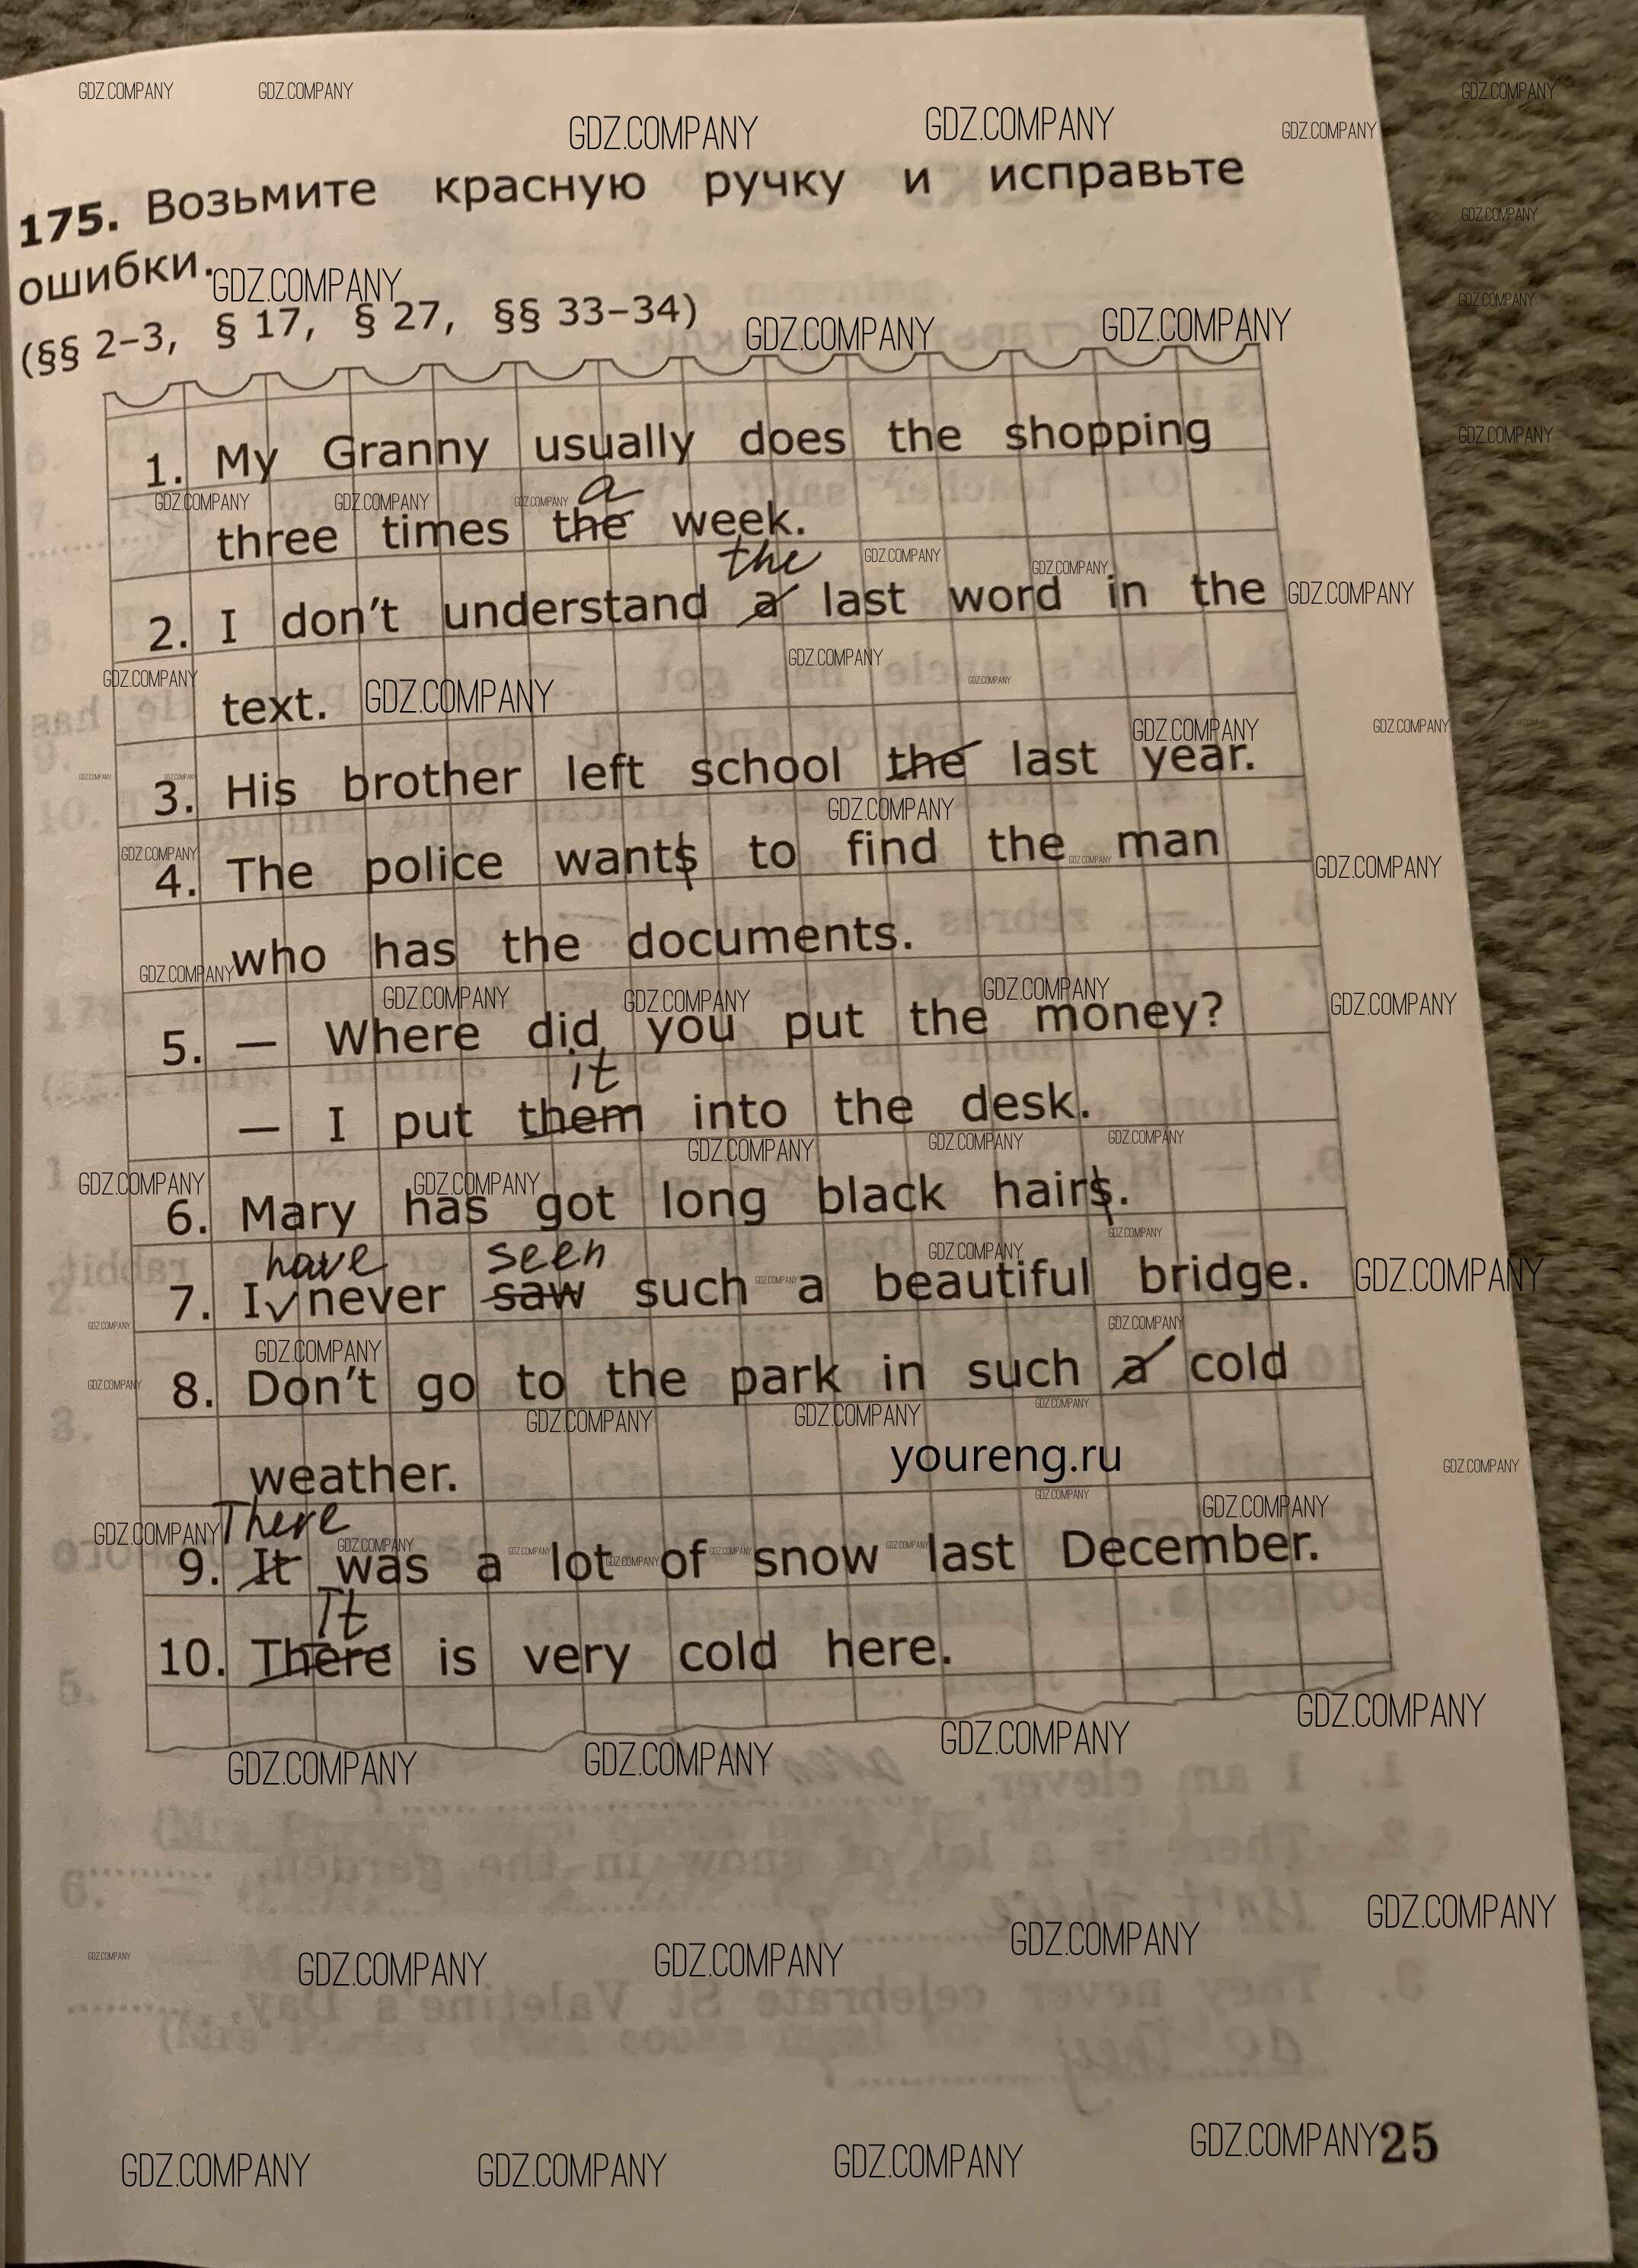 GDZ.COMPANY GDZ.COMPANY GDZ.COMPANY GDZ.COMPANY GDZ.COMPANY GDZ.COMPANY
175. Возьмите красную ручку и исправьте
ошибки.
(§§ 2–3, § 17, § 27, §§ 33–34)
1. My Granny usually does the shopping
a
three times the week.
the
2. I don't understand a last word in the
text.
3. His brother left school the last year.
4. The police wants to find the man
who has the documents.
5. — Where did you put the money?
it
— I put them into the desk.
6. Mary has got long black hairs.
have seen
7. I✓never saw such a beautiful bridge.
8. Don't go to the park in such a cold
weather.
youreng.ru
There
9. It was a lot of snow last December.
It
10. There is very cold here.
GDZ.COMPANY GDZ.COMPANY GDZ.COMPANY GDZ.COMPANY
GDZ.COMPANY GDZ.COMPANY GDZ.COMPANY GDZ.COMPANY
GDZ.COMPANY GDZ.COMPANY GDZ.COMPANY GDZ.COMPANY
25